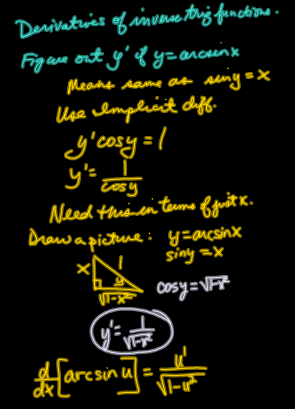 Derivatives of inverse trig functions.
Figure out y' if y = arcsin x
Means same as sin y = x
Use Implicit diff.
y' cos y = 1
y' = 1/cos y
Need this in terms of just x.
Draw a picture: y = arcsin x
sin y = x
x 1 y √1-x² cos y = √1-x²
y' = 1/√1-x²
d/dx [arcsin u] = u'/√1-u²